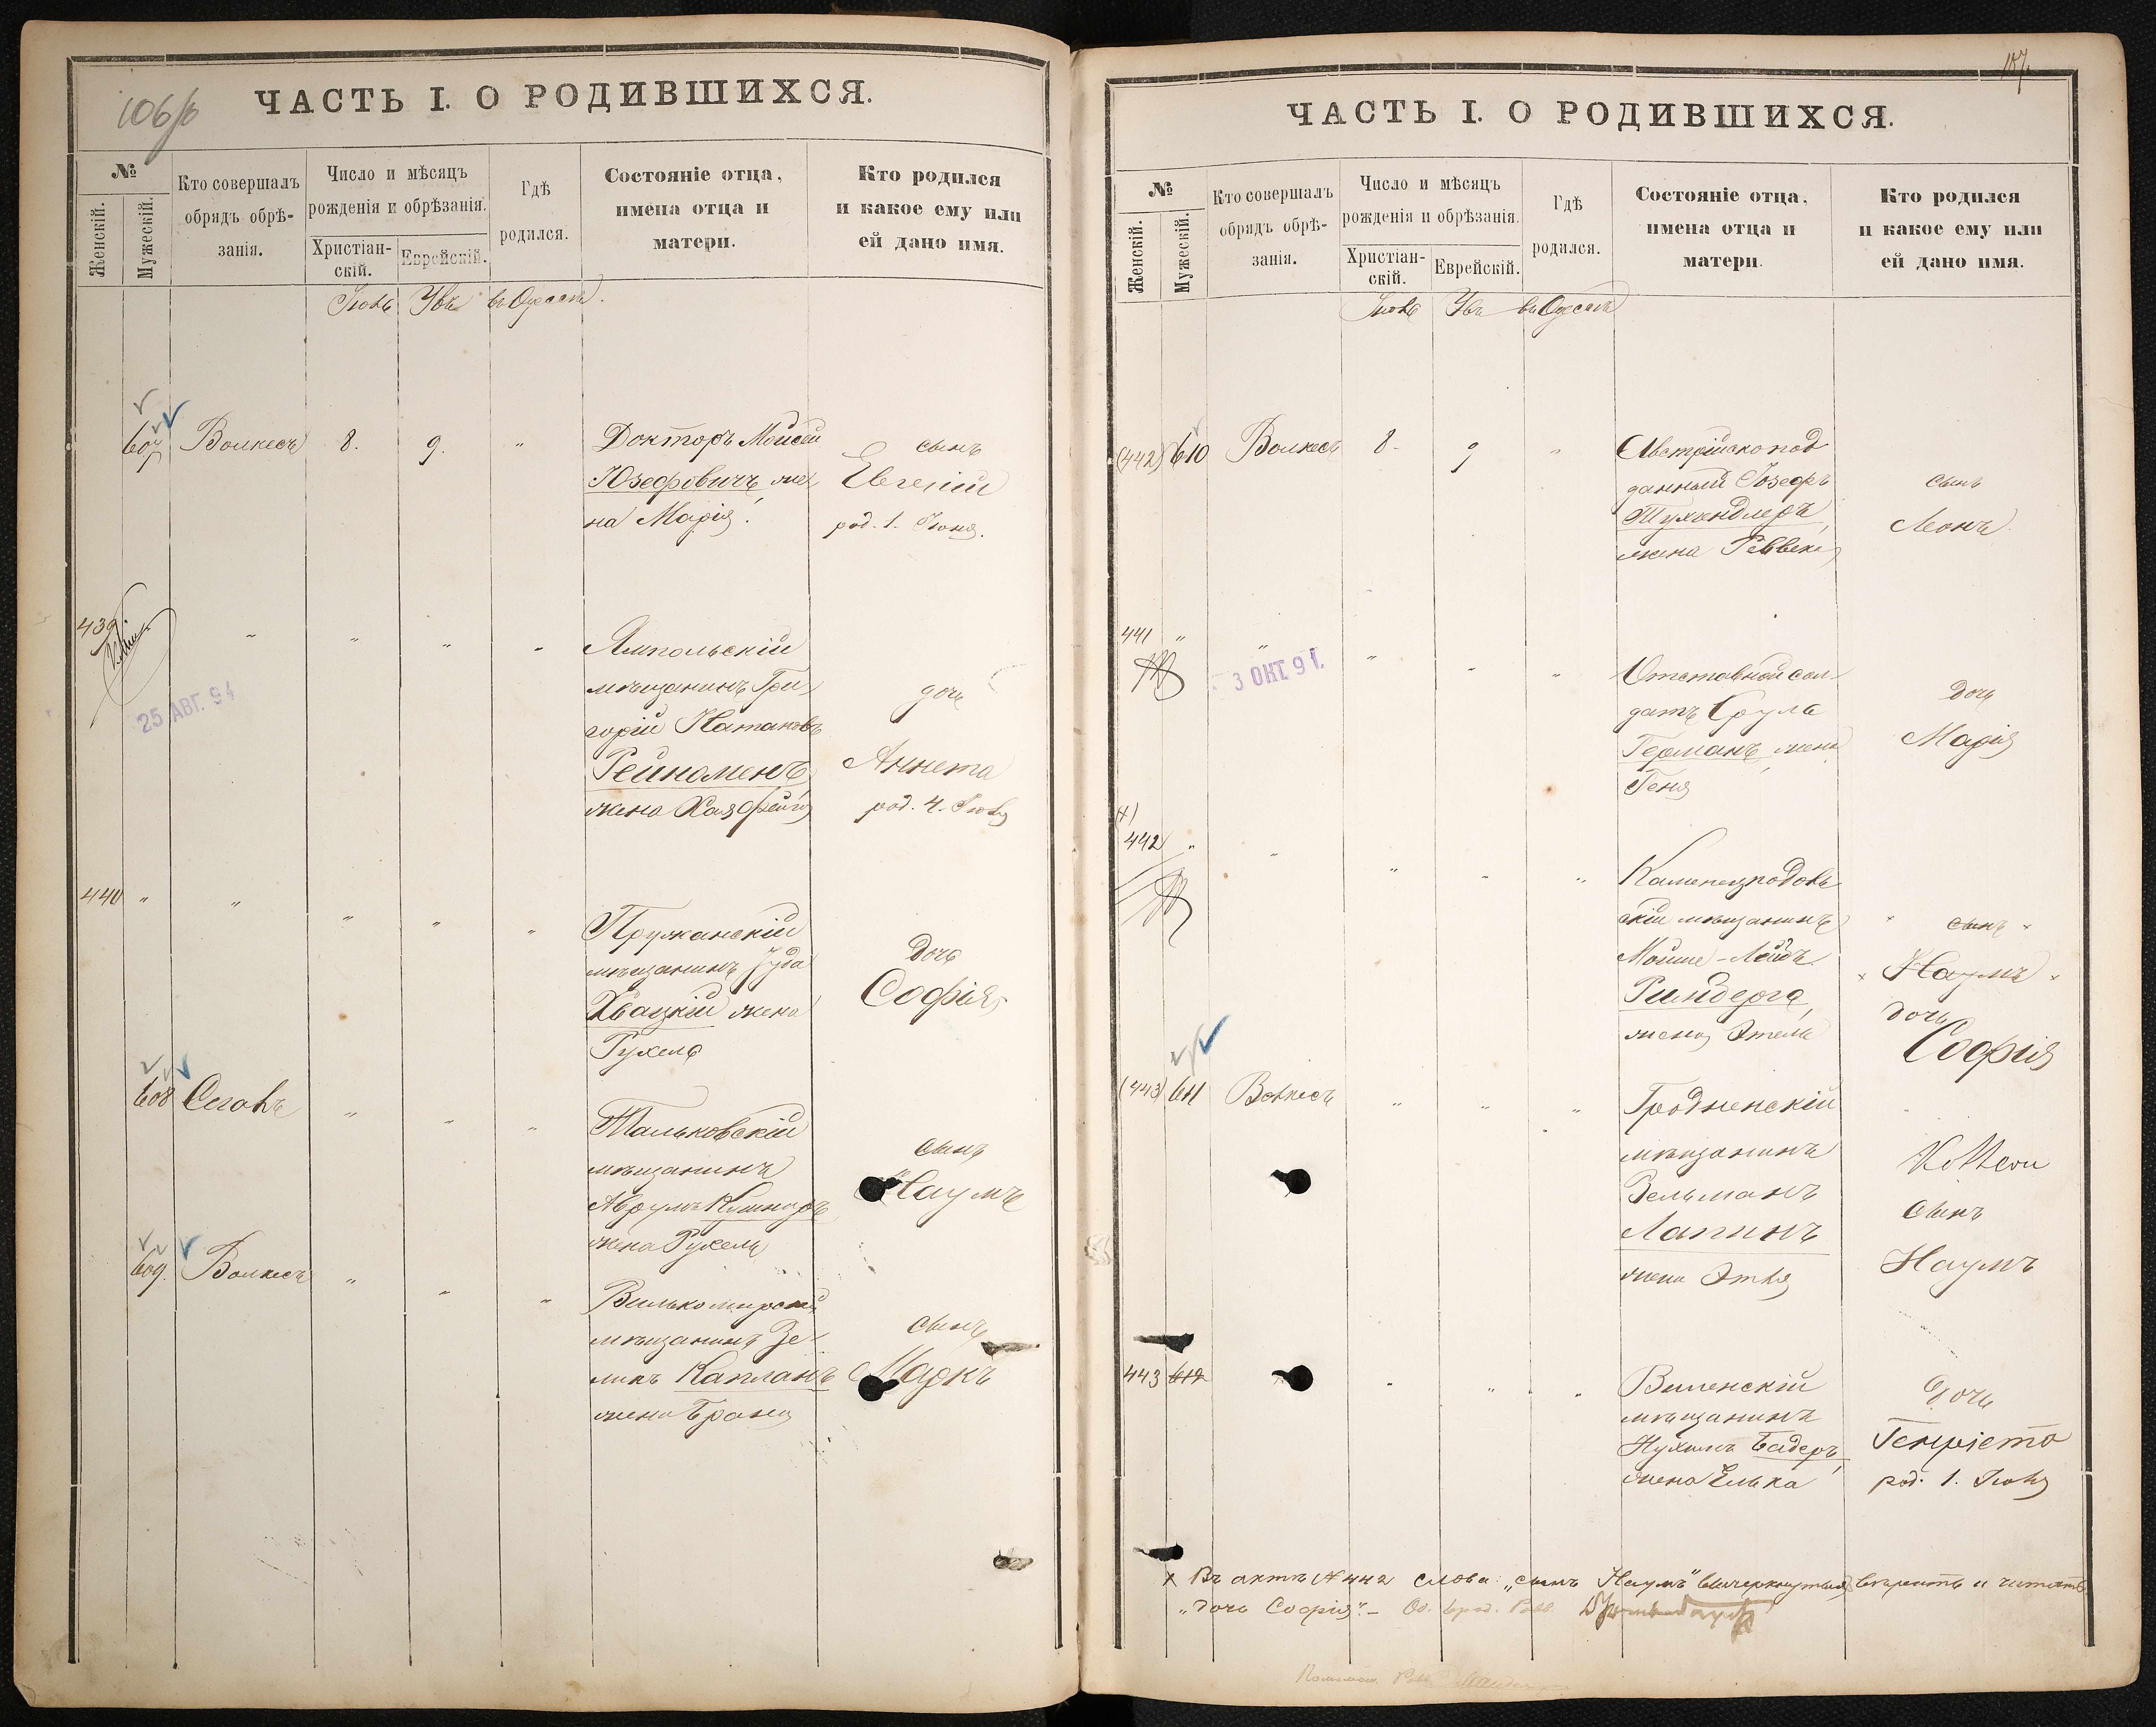 106/b
ЧАСТЬ I. О РОДИВШИХСЯ.
№
Женскій.
Мужескій.
Кто совершалъ
обрядъ обрѣ-
занія.
Число и мѣсяцъ
рожденія и обрѣзанія.
Христіан-
скій.
Еврейскій.
Гдѣ
родился.
Состояніе отца,
имена отца и
матери.
Кто родился
и какое ему или
ей дано имя.
въ Одессѣ.
607 Волкесъ 8. 9. "
Докторъ Мойсей
Юзефовичъ, же-
на Марія.
сынъ
Евгеній
род. 1. Іюня.
439 " " " "
25 АВГ. 94
Ямпольскій
мѣщанинъ Гри-
горій Натановъ
Рейнгменъ
жена Хая Фейга
дочь
Аннета
род. 4. Іюня
440 " " " " "
Пружанскій
мѣщанинъ Іуда
Хвацкій жена
Рухель
дочь
Софія
608 Сегаль " " "
Тальковскій
мѣщанинъ
Аврумъ Кушниръ
жена Рухель
сынъ
Наумъ
609. Волкесъ " " "
Вилькомирскій
мѣщанинъ Зе-
ликъ Капланъ
жена
сынъ
Маркъ
107.
ЧАСТЬ I. О РОДИВШИХСЯ.
№
Женскій.
Мужескій.
Кто совершалъ
обрядъ обрѣ-
занія.
Число и мѣсяцъ
рожденія и обрѣзанія.
Христіан-
скій.
Еврейскій.
Гдѣ
родился.
Состояніе отца,
имена отца и
матери.
Кто родился
и какое ему или
ей дано имя.
въ Одессѣ
(442) 610 Волкесъ 8. 9 "
Австрійскопод
данный Іозефъ
Тухендлеръ,
жена Ревекка
сынъ
Леонъ
441 " " " " "
3 ОКТ. 91.
Отставной сол-
датъ Сруль
Германъ, жена
Геня
дочь
Марія
(x)
442 " " " " "
Каменецподоль
скій мѣщанинъ
Мойше-Лейбъ
жена Этель
сынъ
Наумъ
дочь
Софія
(443) 611 Волкесъ " " "
Гродненскій
мѣщанинъ
Зельманъ
Лапинъ
жена Этля
сынъ
Наумъ
443 612 " " "
Виленскій
мѣщанинъ
Нухимъ Бадеръ,
жена Елька
дочь
Генріета
род. 1. Іюня
x Въ актѣ №442 слова: "сынъ Наумъ" вычеркнутыя вѣрить и читать
"дочь Софія".-